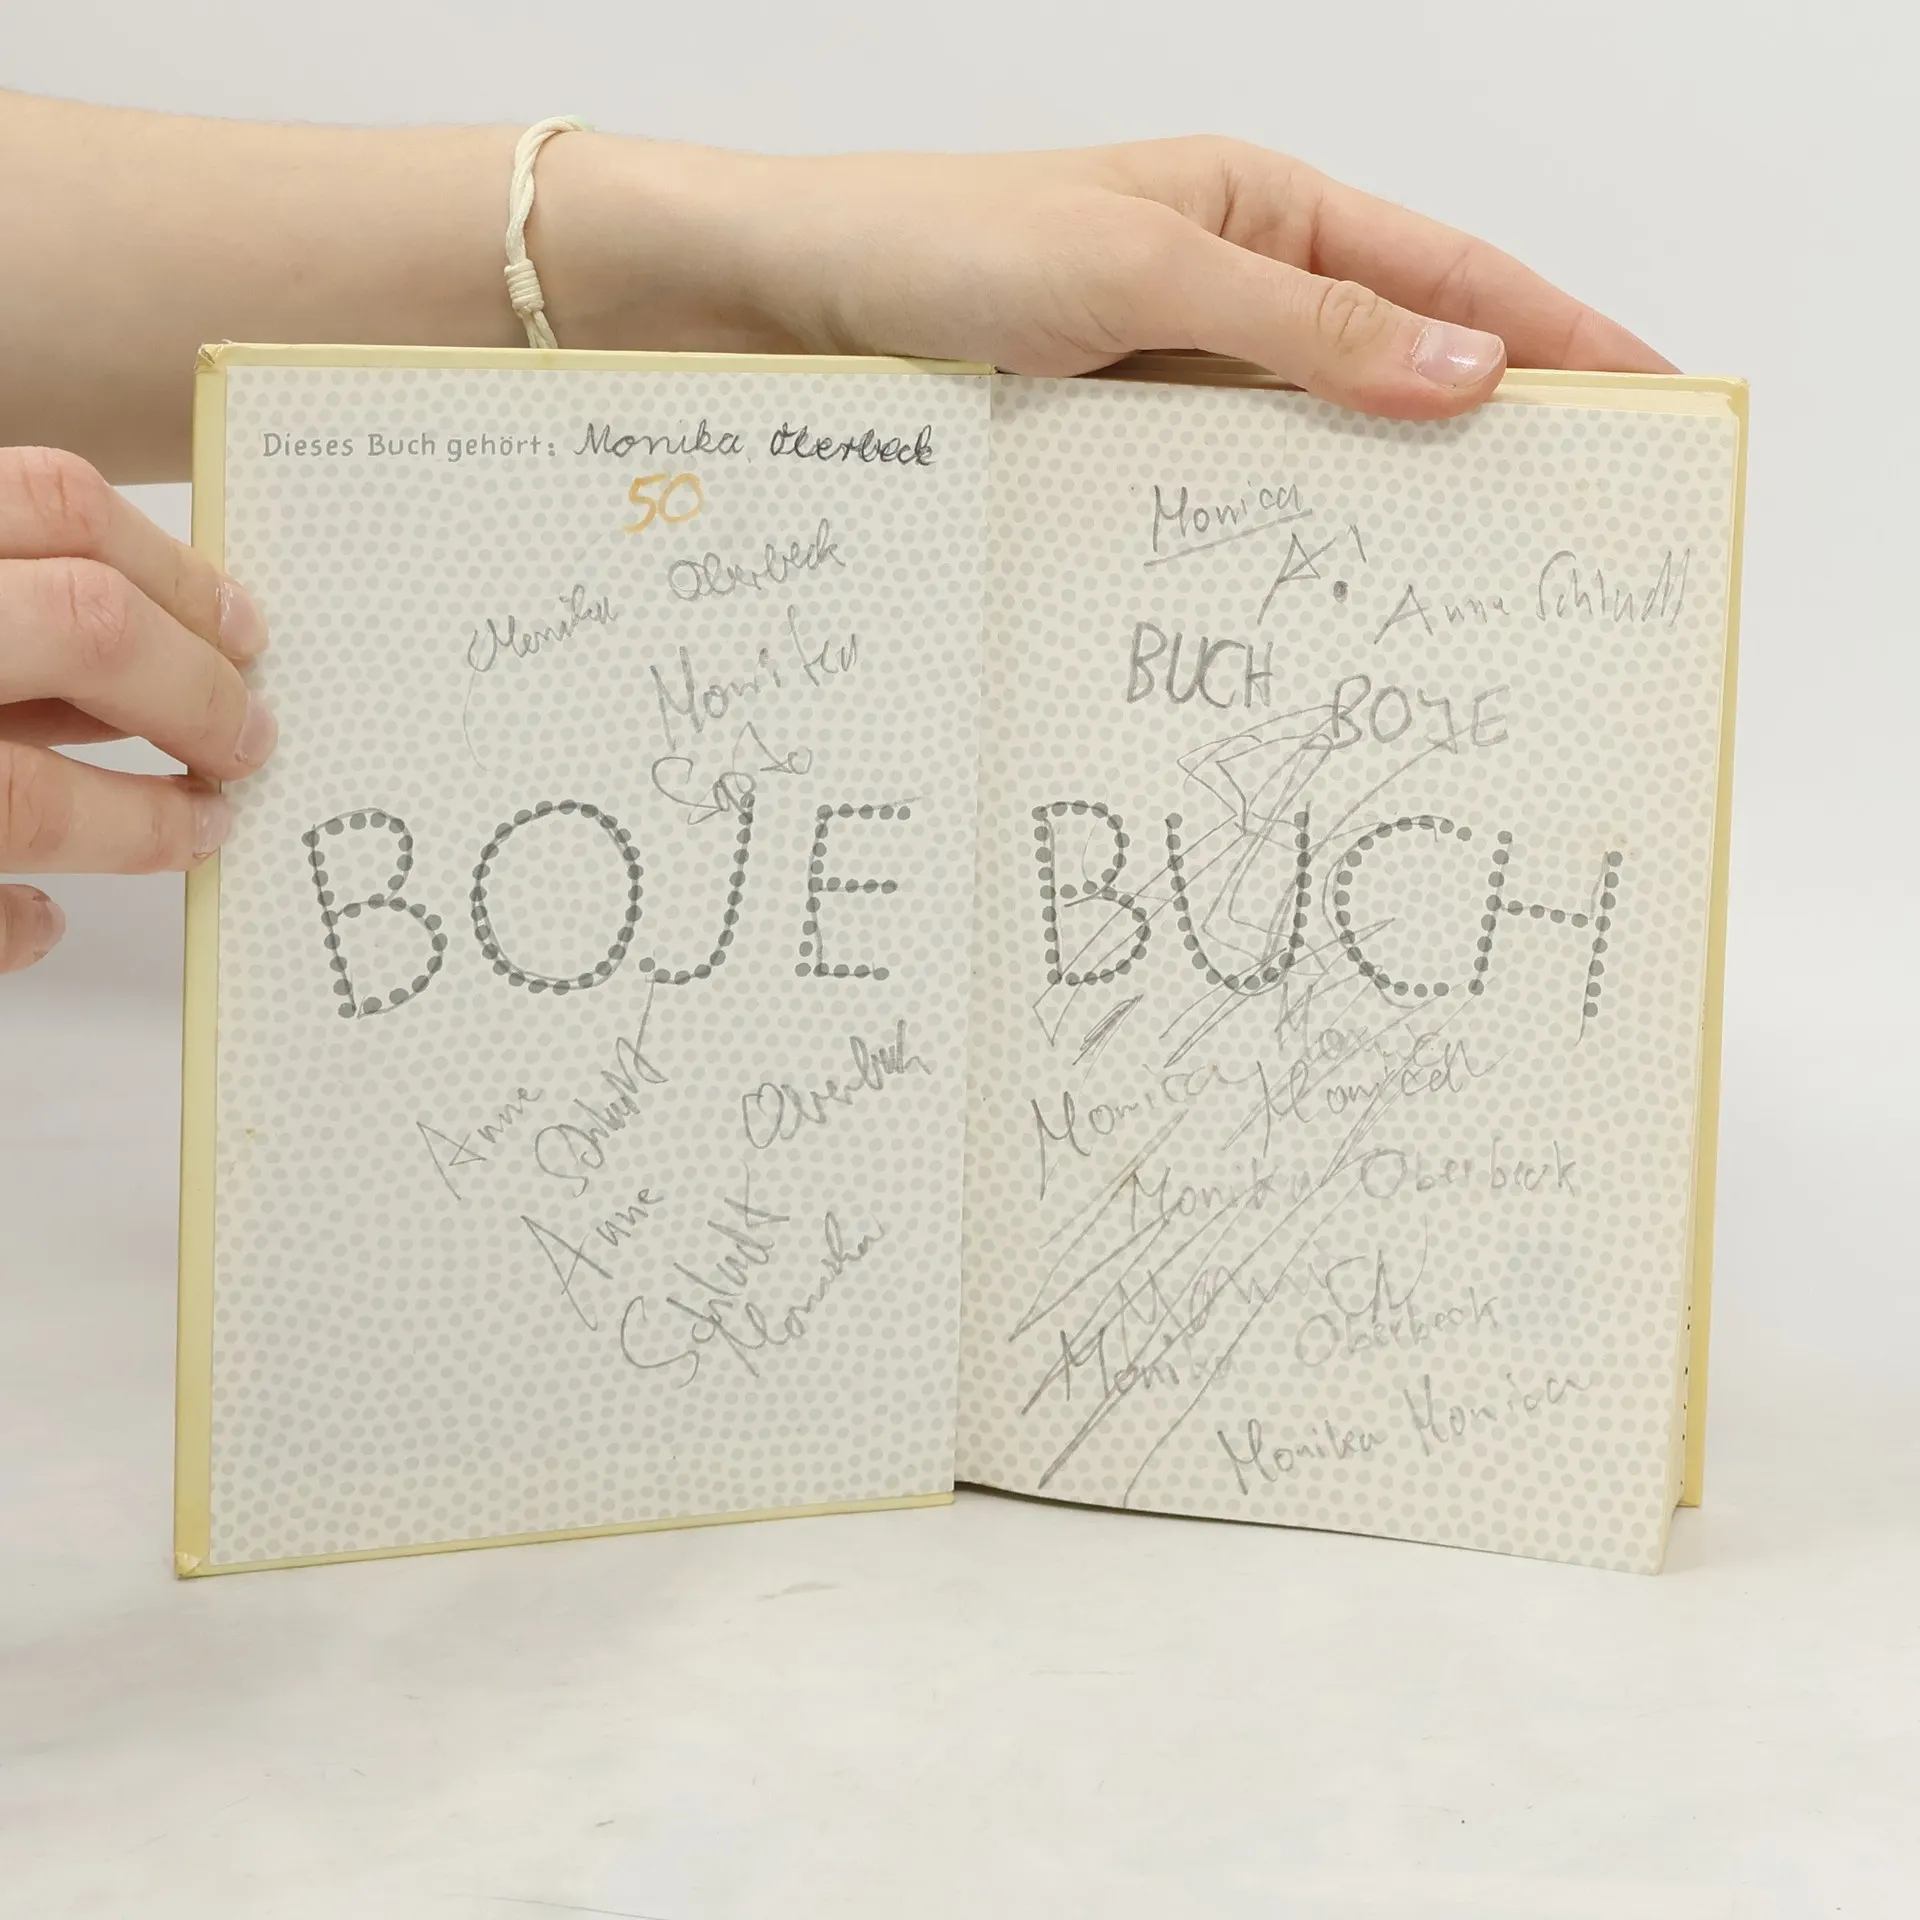 Dieses Buch gehört: Monika Oberbeck
50
Monika Oberbeck
Monika
BOJE
Anne
Oberbeck
Anne
Schludt
Monika
Monica
A!
Anne
BUCH
BOJE
BUCH
Monica
Monica
Monika Oberbeck
Monica
Monika Oberbeck
Monika Monica